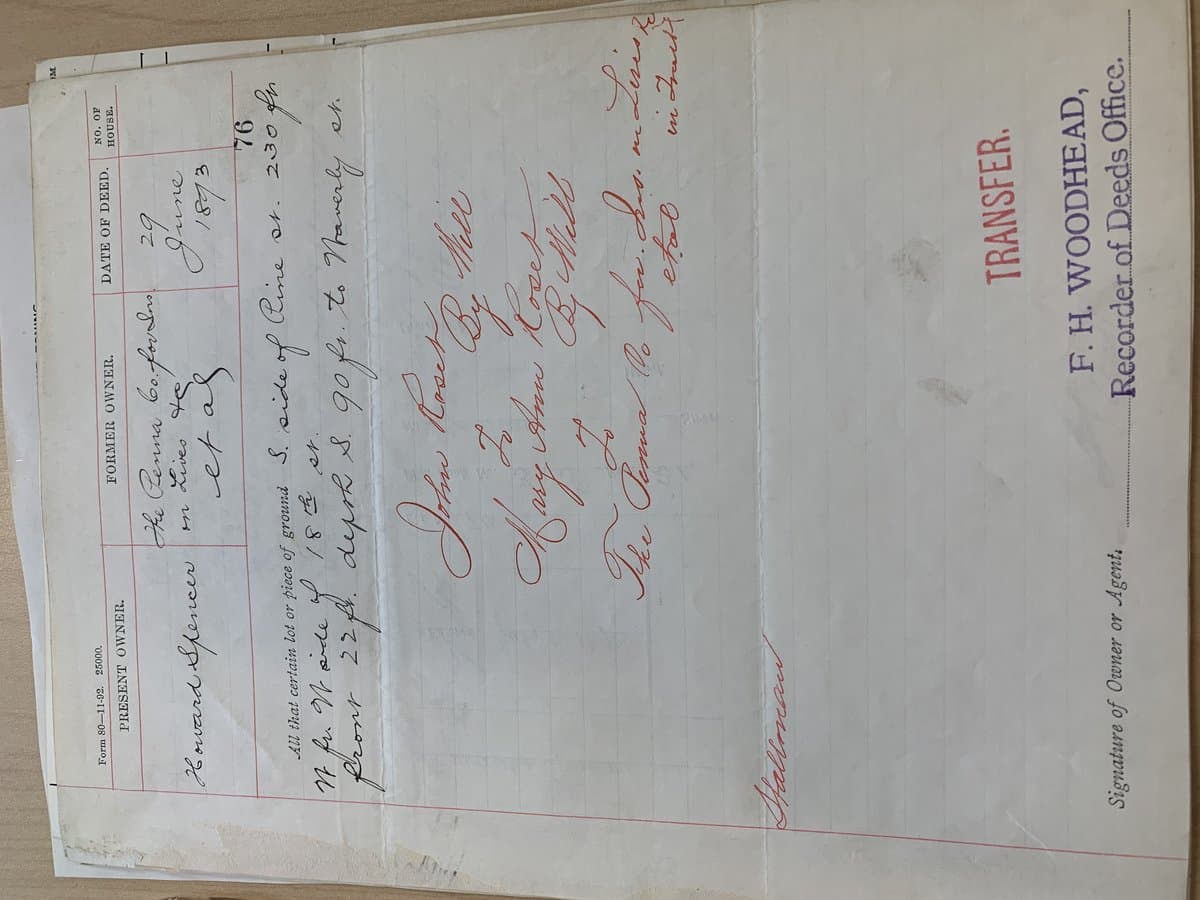 Form 80—11-92. 25000.
PRESENT OWNER. FORMER OWNER. DATE OF DEED. NO. OF HOUSE.
Howard Spencer
The Penna Co. for Ins.
on Lives &c
et al
29
June
1893
76
All that certain lot or piece of ground S. side of Pine st. 230 ft
W fr. W side of 18th st.
front 22 ft. depth S. 90 ft. to Waverly st.
John Roset
By Will
To
Mary Ann Roset
By Will
To
The Penna Co for. Ins. on Lives &c
et al in Trust
Hallman
TRANSFER.
F. H. WOODHEAD,
Signature of Owner or Agent, Recorder of Deeds Office.